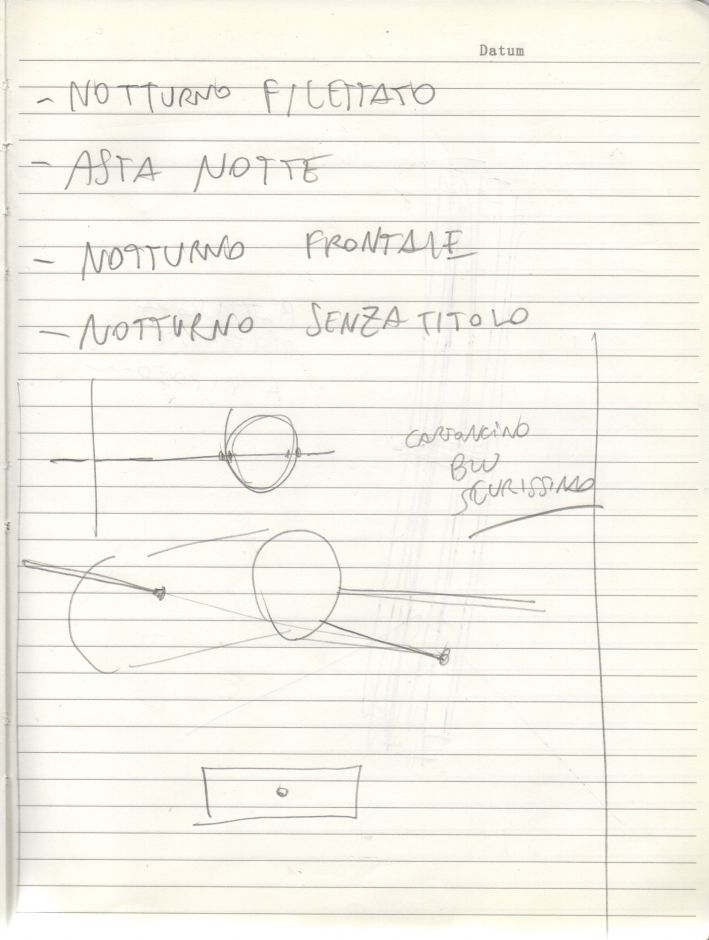 Datum
- NOTTURNO FILETTATO
- ASTA NOTTE
- NOTTURNO FRONTALE
- NOTTURNO SENZA TITOLO
CARTONCINO
BLU
SCURISSIMO